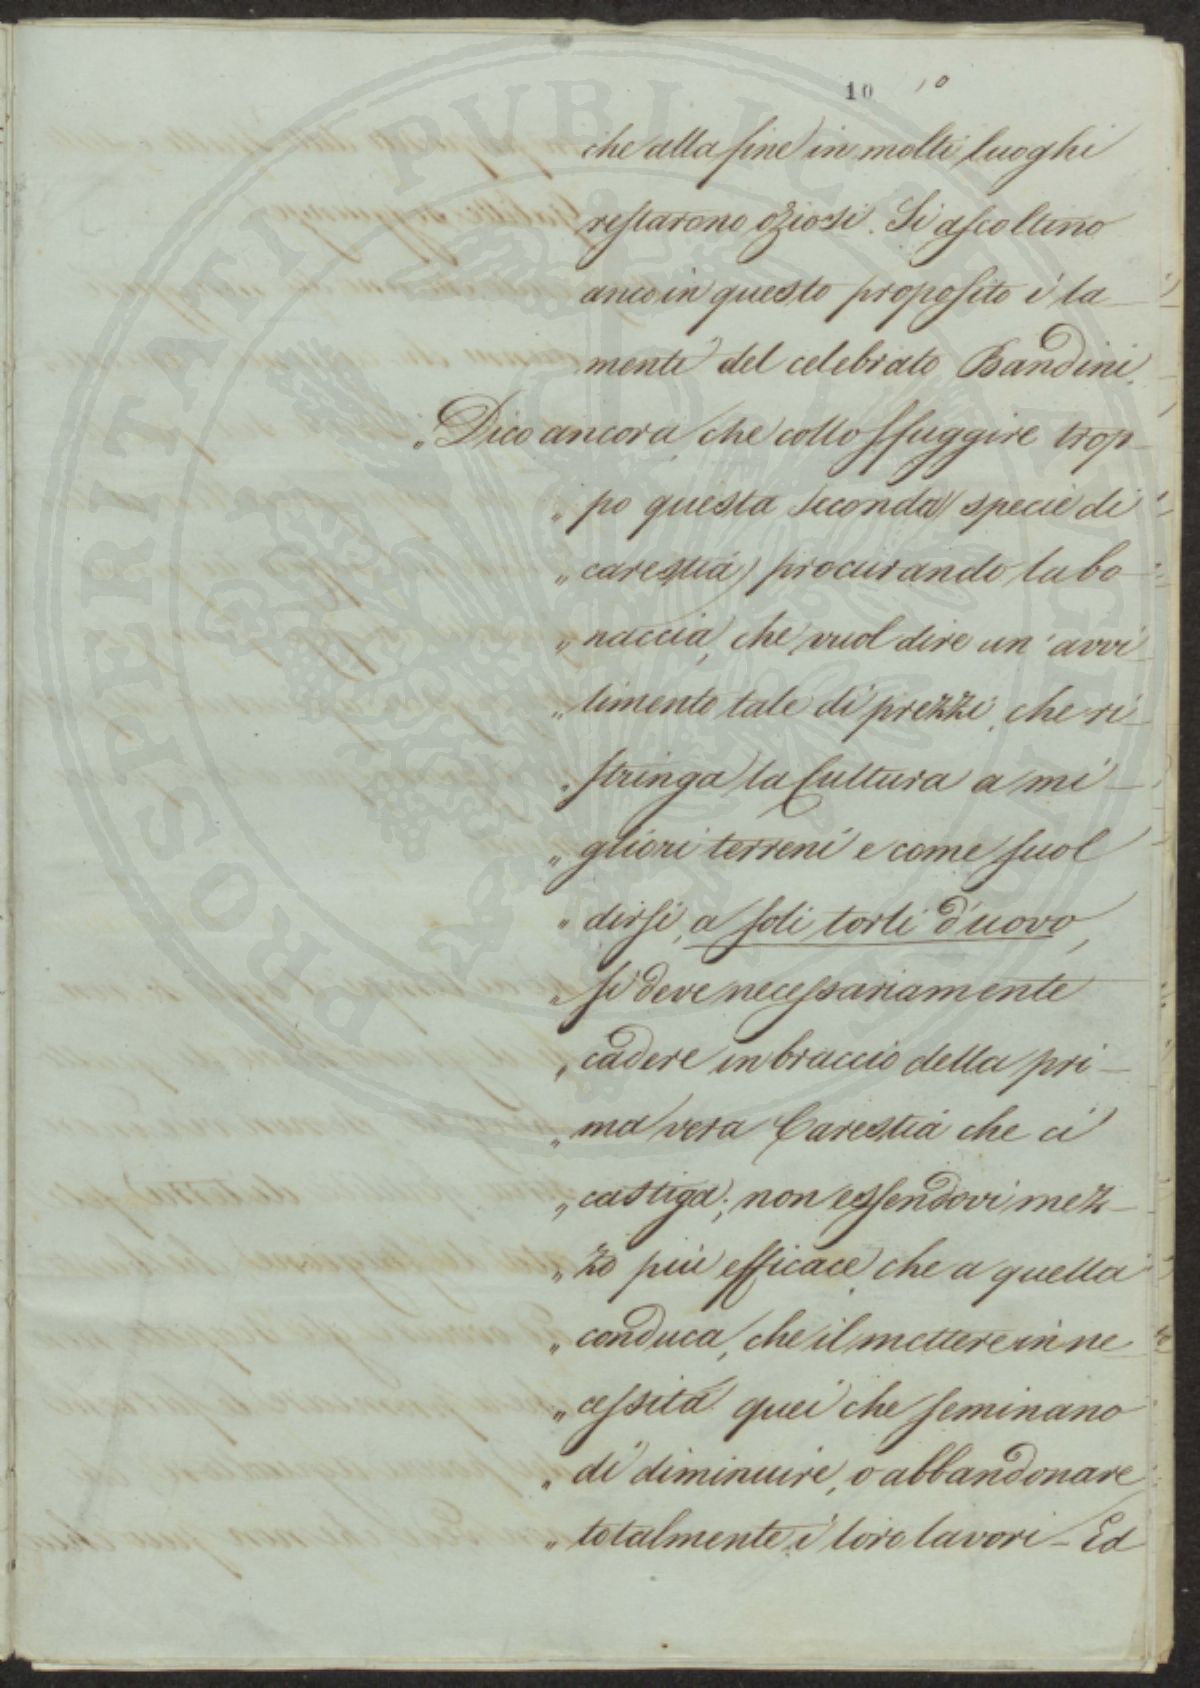 10 10
che alla fine in molti luoghi
restarono oziosi. Si ascoltino
anco in questo proposito i la-
menti del celebrato Bandini.
„Dico ancora, che collo sfuggire trop-
„po questa seconda specie di
„carestia, procurando la bo-
„naccia, che vuol dire un' avvi-
„limento tale di prezzi, che ri-
„stringa la Cultura a mi-
„gliori terreni e come suol
„dirsi, a soli torli d'uovo,
„si deve necessariamente
„cadere in braccio della pri-
„ma vera Carestia che ci
„castiga; non essendovi mez-
„zo più efficace, che a quella
„conduca, che il mettere in ne-
„cessità quei che seminano
„di diminuire, o abbandonare
„totalmente i loro lavori - Ed
PROSPERITATI PUBLICAE AUGENDAE